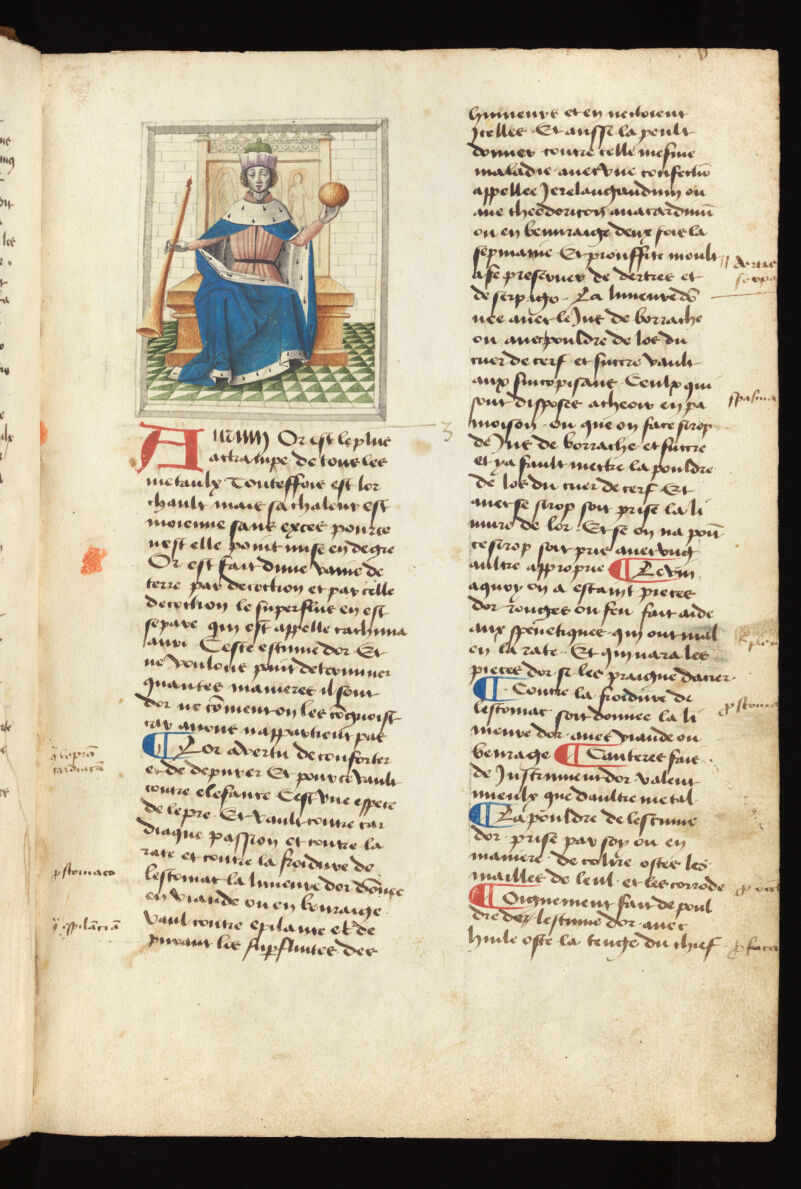 Aurum Or est le plus
actrampe de tous les
metaulx Touteffois est lor
chault mais sa chaleur est
moienne sans exces pource
nest elle point mise en degre
Or est fait dune vaine de
terre par decoction et par celle
decoction le superflus en est
separe qui est appelle cathima
auri Ceste estume dor Et
ne voulons point determiner
quantes manieres il sont
dor ne cõment on les cõgnoist
car a nous nappartient pas
¶ Lor a vertu de conforter
et de depurer Et pour ce vault
contre elefance Cest vne espece
de lepre Et vault contre car
diaque passion et contre la
rate et contre la froidure de
lestomac la limeure dor dõnee
en viande ou en beuraige
vault contre epilamie et de
purant les supfluites des
humeurs et en nectoient
Jcelles Et ausse la peult
donner contre celle mesme
maladie auec vne confectiõ
appellee Jerelaugaudmm ou
aue theodoriton anacardinũ
ou en beuuraige deux fois la
sepmaine Et prouffite moult
a se preseruer de dertres et
de serpigo La limeure dõ
nee auec le Jus de borrache
ou auec pouldre de los du
cuer de cerf et succre vault
aux sincopisans Ceulx qui
sont disposes a cheoir en pa
moison ou que on face sirop
de Jus de borrache et succre
et y a fault mectre la pouldre
de los du cuer de cerf Et
auec se sirop soit prise la li
mure de lor Et se on na point
ce sirop soit prie auec vng
aultre appropue ¶ Le vin
a quoy on a estaint pieces
dor rouges ou feu fait aide
aux spenetiques qui ont mal
en la rate Et qui nara les
pieces dor se les praigne dacier
¶ Contre la froidure de
lestomac soit donnee la li
meure dor auec viande ou
beurage ¶ Cauteres fait
de Jnstrument dor valent
mieulx que daultre metal
¶ La pouldre de lescume
dor prise par soy ou en
maniere de colire oste les
mailles de leul et les corrode
¶ Oignement fait de poul
dre de lescume dor auec
huile oste la teuge du chief
3
ꝯ stomaco